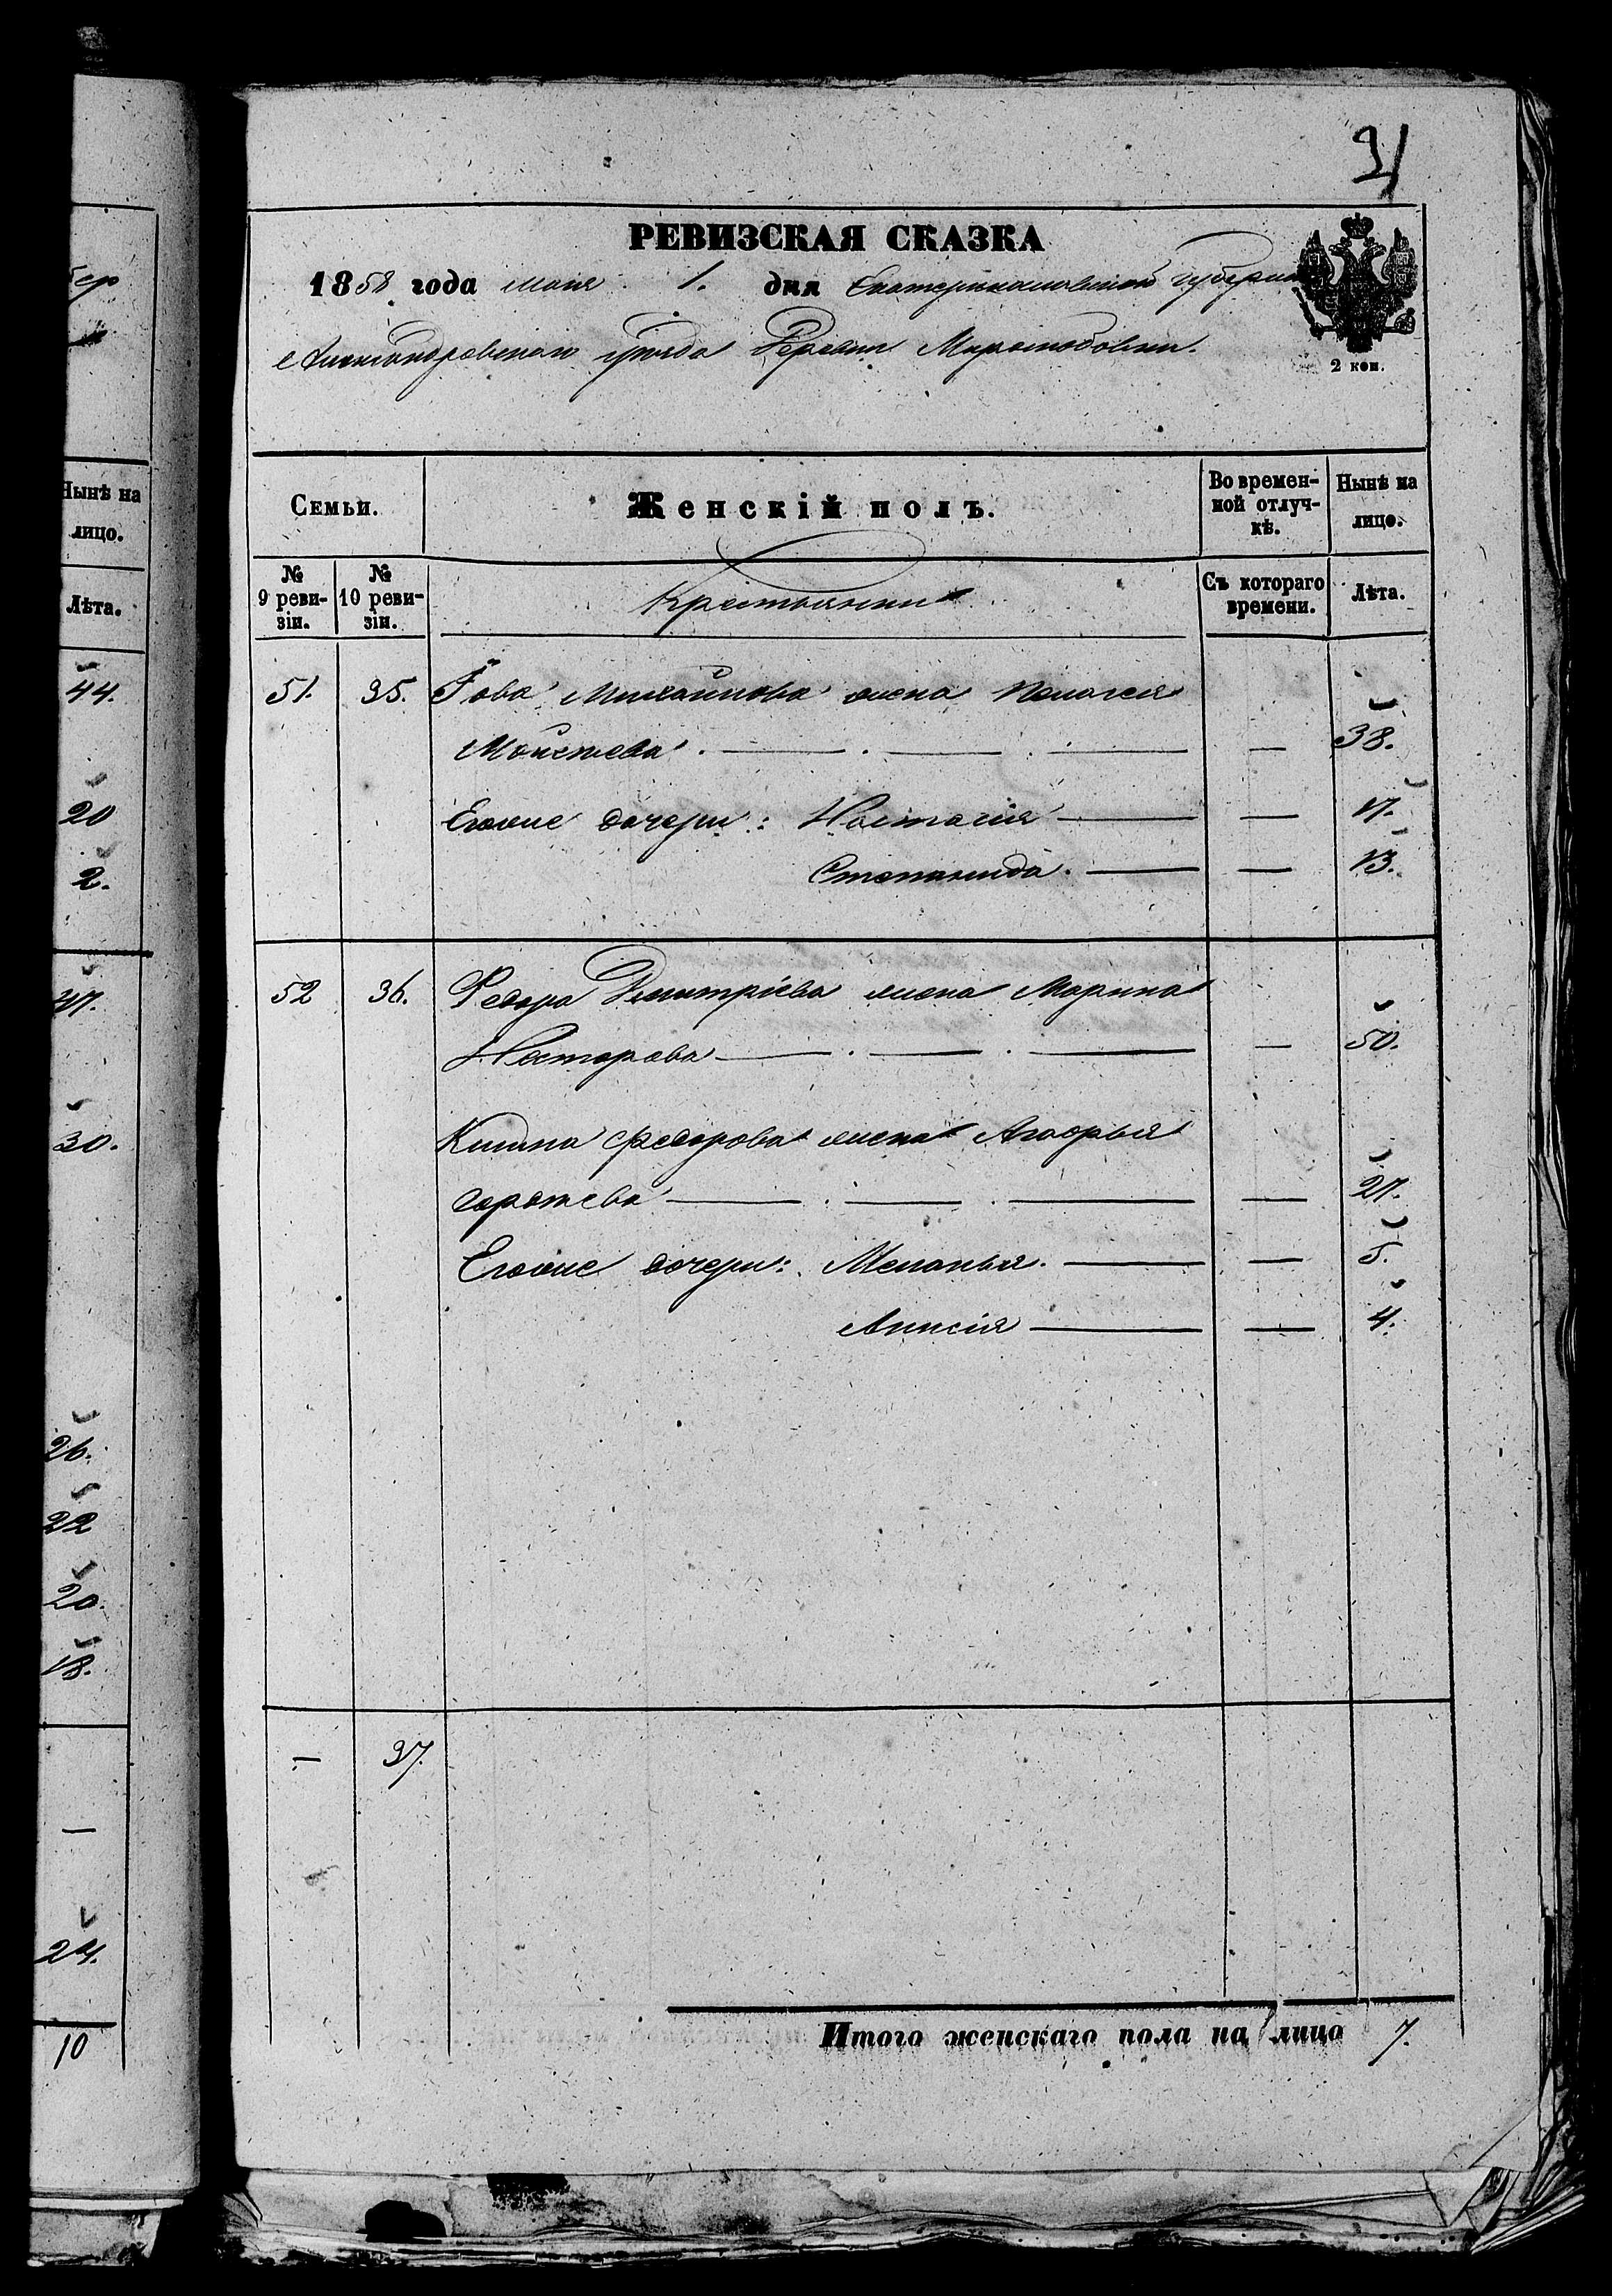 21
РЕВИЗСКАЯ СКАЗКА
1858 года маія 1. дня Екатеринославской губерніи
Александровскаго уѣзда Деревни Миролюбовки.
2 коп.
Семьи.
Женскій полъ.
Во времен-
ной отлуч-
кѣ.
Нынѣ на
лицо.
№
9 реви-
зіи.
№
10 реви-
зіи.
Крестьянки
Съ котораго
времени.
Лѣта.
51. 35. Іова Михайлова жена Пелагея
Моисеева — 38.
Егоже дочери: Настасія — 17.
Степанида. — 13.
52 36. Федора Дмитріева жена Марина
Нестерова — 50.
Федорова жена
— 27.
Егоже дочери: Меланья. — 5.
Анисія — 4.
— 37.
Итого женскаго пола на лицо 7.
Нынѣ на
лицо.
Лѣта.
44.
20
2.
47.
30.
26.
22
20.
18.
—
24.
10